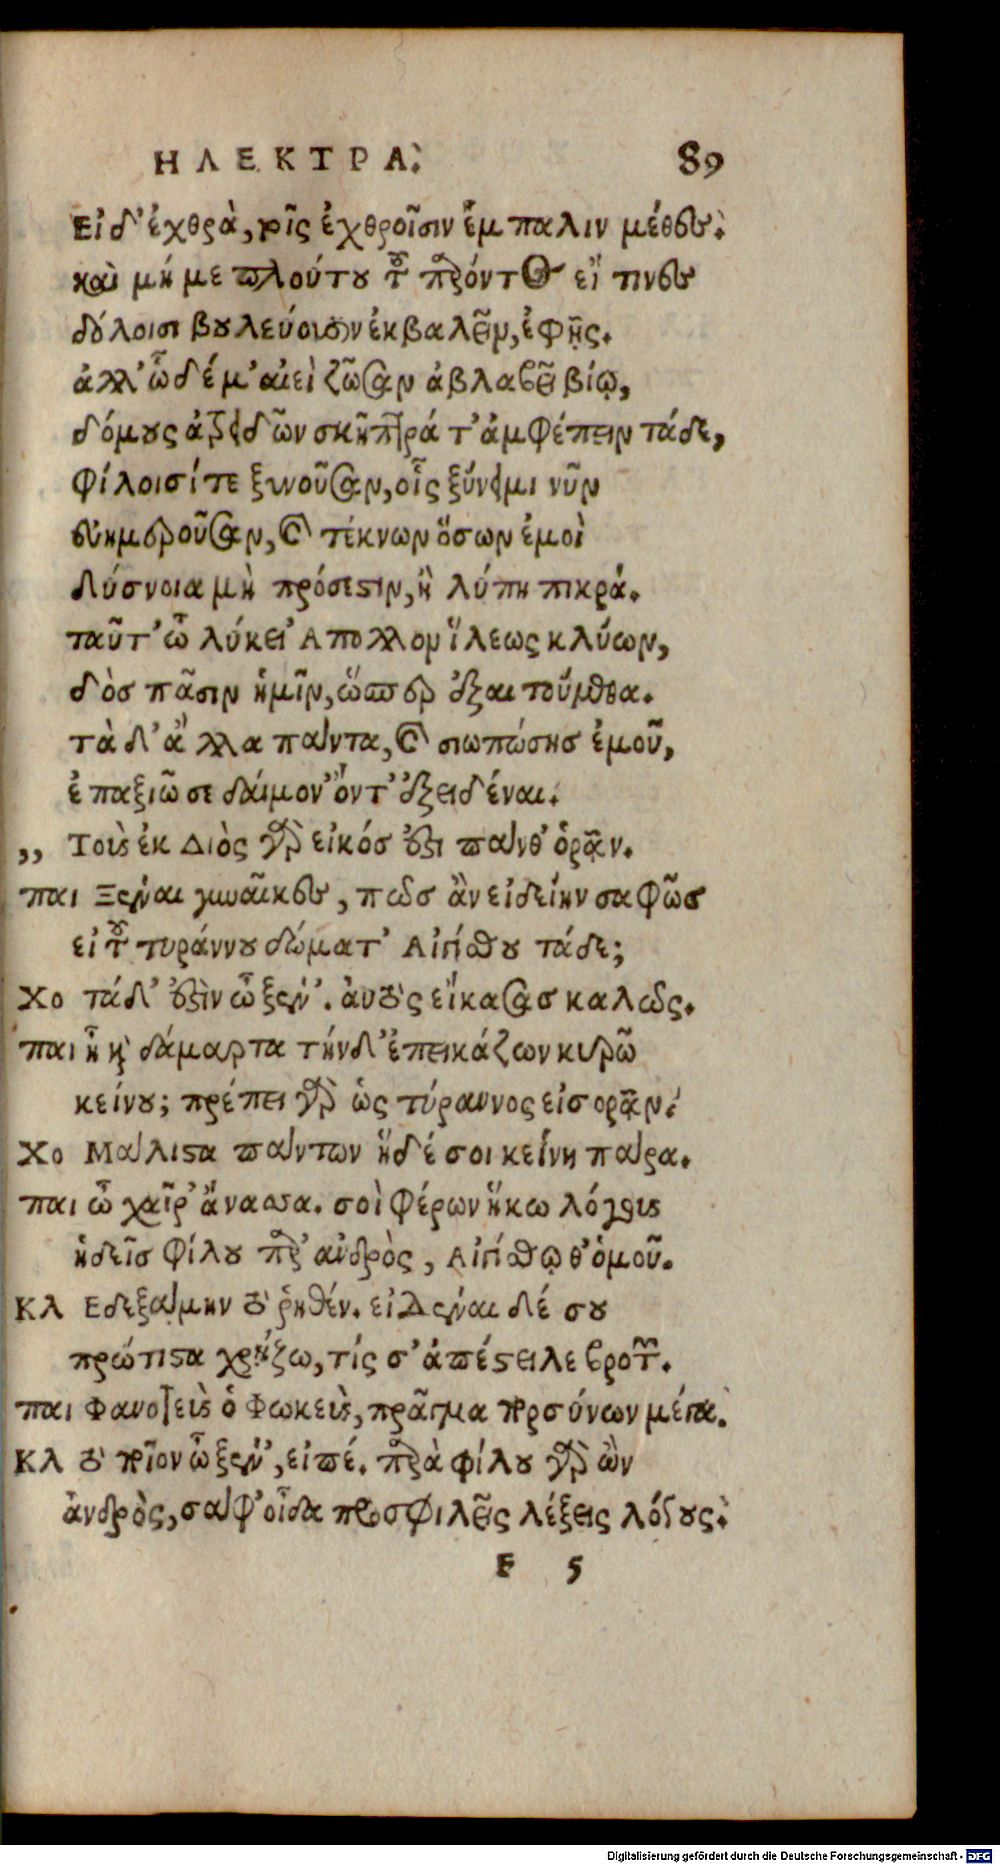 ΗΛΕΚΤΡΑ. 89
Εἰ δ' ἐχθρὰ, τοῖς ἐχθροῖσιν ἔμπαλιν μέθες.
καὶ μή με πλούτου τοῦ παρόντος εἴ τινες
δόλοισι βουλεύουσιν ἐκβαλεῖν, ἐφῇς.
ἀλλ' ὧδέ μ' αἰεὶ ζῶσαν ἀβλαβεῖ βίῳ,
δόμους ἀτρειδῶν σκῆπτρά τ' ἀμφέπειν τάδε,
φίλοισί τε ξυνοῦσαν, οἷς ξύνειμι νῦν
εὐημεροῦσαν, καὶ τέκνων ὅσων ἐμοὶ
Δύσνοια μὴ πρόσεστιν, ἢ λύπη πικρά.
ταῦτ' ὦ λύκει' Απολλον ἵλεως κλύων,
δὸσ πᾶσιν ἡμῖν, ὥσπερ ἐξαιτούμεθα.
τὰ δ' ἄλλα πάντα, καὶ σιωπώσησ ἐμοῦ,
ἐπαξιῶ σε δαίμον' ὄντ' ἐξειδέναι.
,, Τοὺς ἐκ Διὸς γὰρ εἰκόσ ἐστι πάνθ' ὁρᾷν.
παι Ξέναι γυναῖκες, πῶσ ἂν εἰδείην σαφῶσ
εἰ τοῦ τυράννου δώματ' Αἰγίσθου τάδε;
Χο τάδ' ἐστὶν ὦ ξέν'. αὐτὸς εἴκασασ καλῶς.
παι ἦ καὶ δάμαρτα τήνδ' ἐπεικάζων κυρῶ
κείνου; πρέπει γὰρ ὡς τύραννος εἰσορᾷν.
Χο Μάλιστα πάντων ἥδέ σοι κείνη πάρα.
παι ὦ χαῖρ' ἄνασσα. σοὶ φέρων ἥκω λόγους
ἡδεῖσ φίλου παρ' ἀνδρὸς, Αἰγίσθῳ θ' ὁμοῦ.
Κλ Εδεξάμην τὸ ῥηθέν. εἰδέναι δέ σου
πρώτιστα χρῄζω, τίς σ' ἀπέστειλε βροτῶν.
παι Φανοτεὺς ὁ Φωκεὺς, πρᾶγμα πορσύνων μέγα.
Κλ τὸ ποῖον ὦ ξέν', εἰπέ. παρὰ φίλου γὰρ ὢν
ἀνδρὸς, σάφ' οἶδα προσφιλεῖς λέξεις λόγους.
F 5
Digitalisierung gefördert durch die Deutsche Forschungsgemeinschaft - DFG